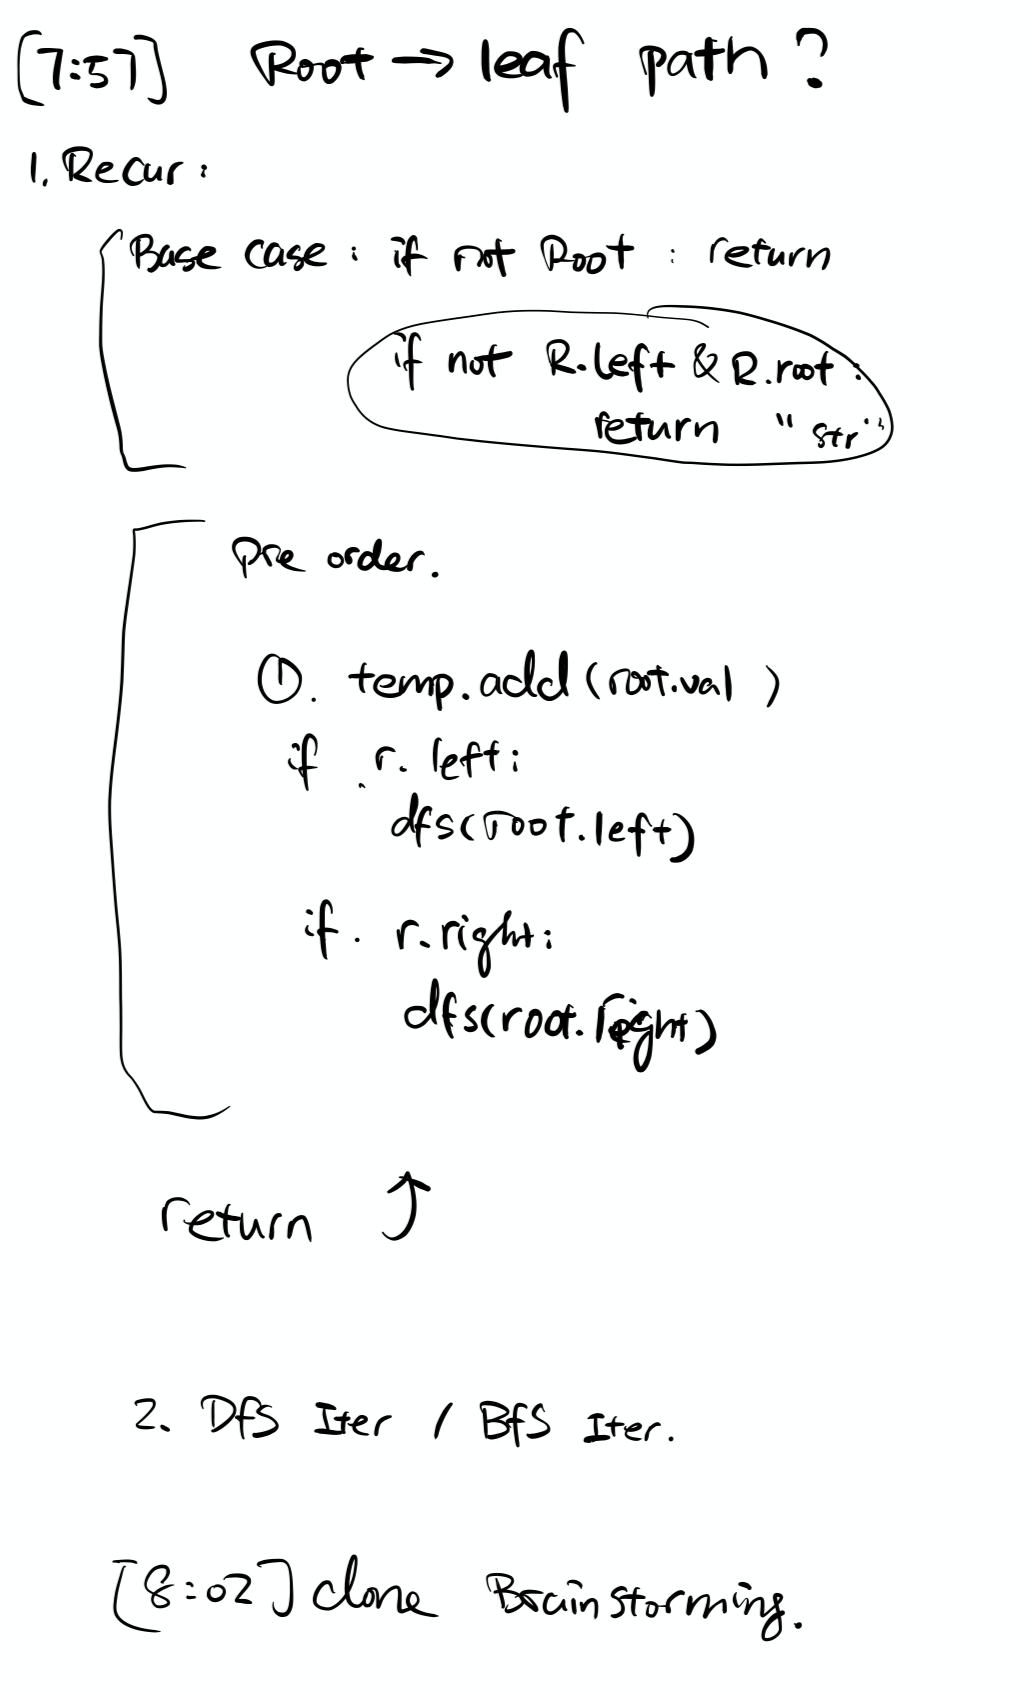 [7:57] Root → leaf path?
1. Recur:
Base case: if not Root: return
if not R.left & R.root:
return "str"
pre order.
①. temp.add(root.val)
if r.left:
dfs(root.left)
if. r.right:
dfs(root.right)
return ⤴
2. DfS Iter / BfS Iter.
[8:02] done Brainstorming.